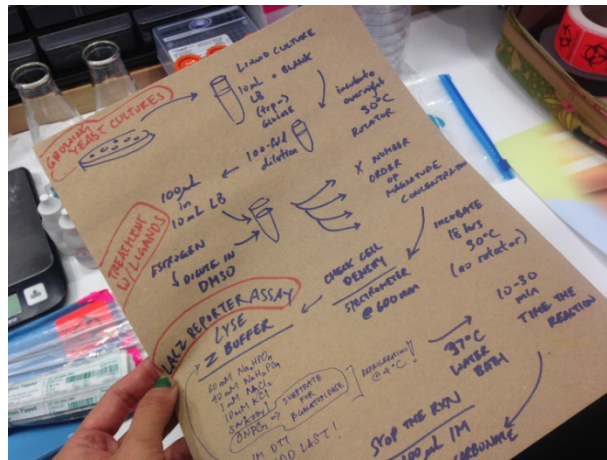 GROWING
YEAST CULTURES
LIQUID CULTURE
10mL + BLANK
LB
(trp-)
Glucose
incubate
overnight
30°C
ROTATOR
100-fold
dilution
100µL
in
10mL LB
X NUMBER
ORDER
OF
MAGNITUDE
CONCENTRATION
TREATMENT
W/LIGANDS
ESTROGEN
↓ DILUTE IN
DMSO
INCUBATE
18 hrs
30°C
(no rotator)
CHECK CELL
DENSITY
SPECTROMETER
@ 600nm
LACZ REPORTER ASSAY
LYSE
Z BUFFER
60mM Na2HPO4
40mM NaH2PO4
1M
10mM KCl
ONPG → SUBSTRATE
FOR
β-GALACTOSIDASE
REFRIGERATION!
@ 4°C!
1M DTT
ADD LAST!
37°C
WATER
BATH
10-30
min
TIME THE
REACTION
STOP THE RXN
1M
CARBONATE